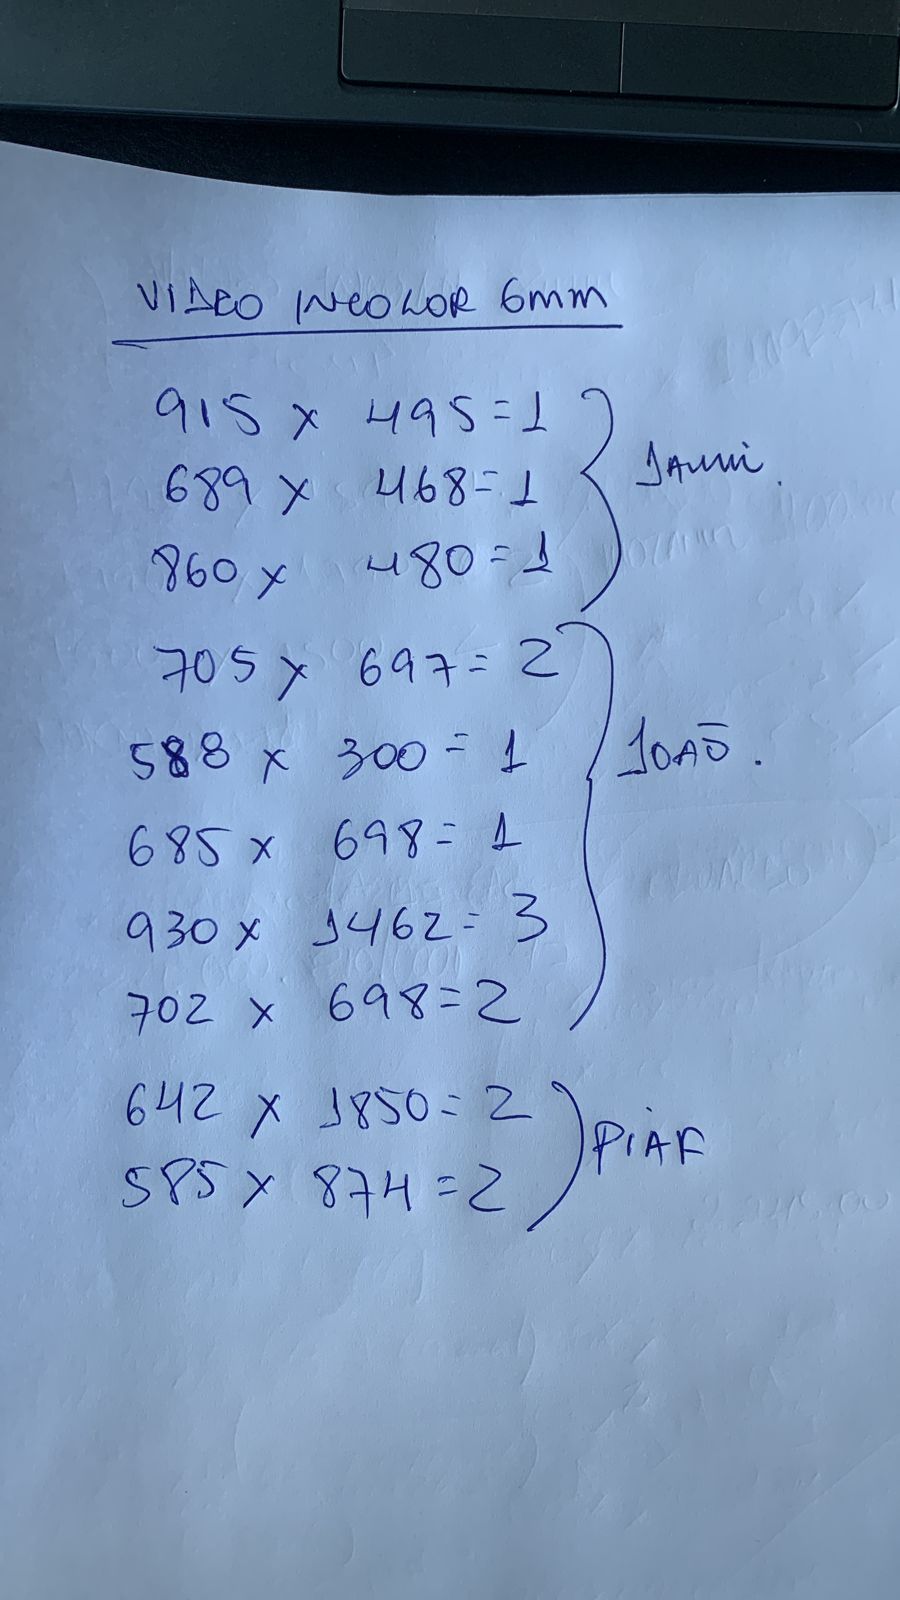 VIDRO INCOLOR 6mm
915 x 495 = 1
689 x 468 = 1
860 x 480 = 1
705 x 697 = 2
588 x 300 = 1
JOAÕ.
685 x 698 = 1
930 x 1462 = 3
702 x 698 = 2
642 x 1850 = 2
585 x 874 = 2
PIAF